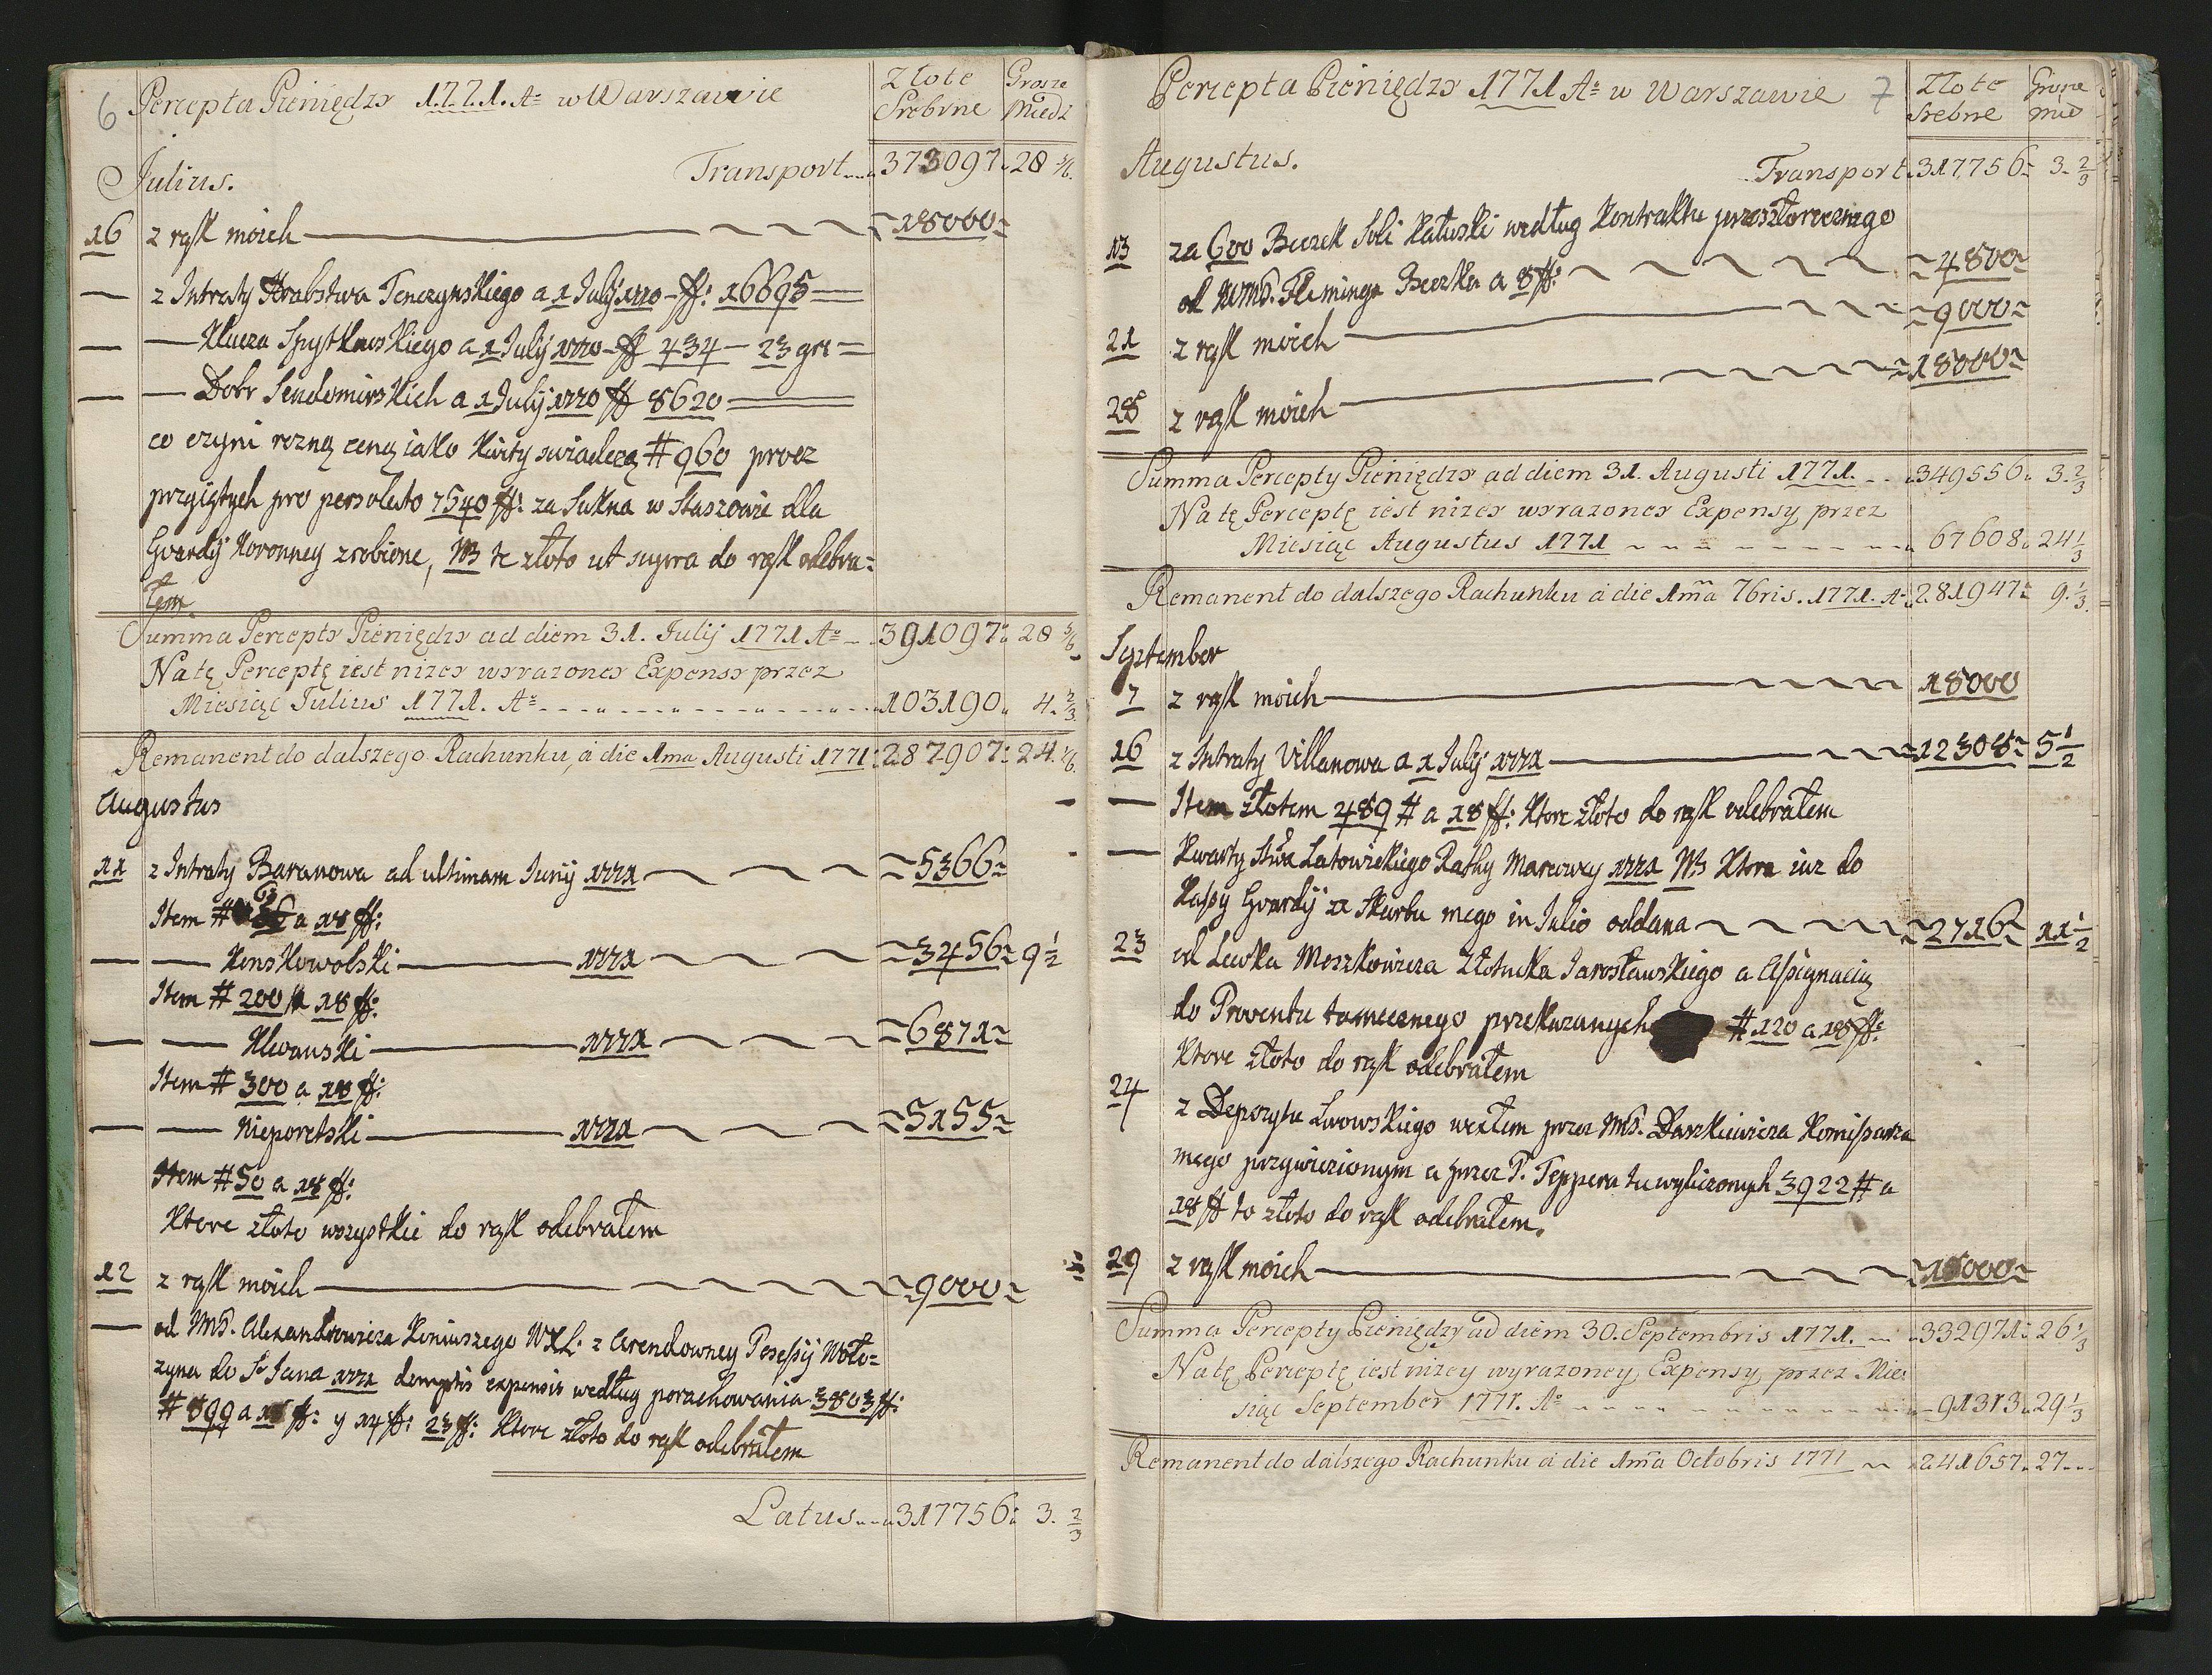 6 Percepta Pieniędzy 1771. Ao w Warszawie Złote Srebrne Grosze Miedz
Julius. Transport 373097 28 5/6.
16 z rąk moich 18000
z Intraty Hrabstwa Tenczynskiego a 1 July 1770 ff: 16695
Klucza Spytkowskiego a 1 July 1770 ff 434 23 grs
Dobr Sendomirskich a 1 July 1770 ff 8620
co czyni rożną ceną iako Karty swiadczą # 960 procz
przyiętych pro persoluto 7540 ff: za Sukna w Staszowie dla
Gvardÿ Koronney zrobione, NB te złoto ut supra do rąk odebra=
łem
Summa Percepty Pieniędzy ad diem 31. July 1771 Ao 391097 28 5/6
Na tę Perceptę iest nizey wyrazoney Expensy przez
Miesiąc Julius 1771. Ao 103190 4. 2/3
Remanent do dalszego Rachunku, a die 1ma Augusti 1771 287907 24 1/6.
Augustus
11 z Intraty Baranowa ad ultimam Junÿ 1771 5366
Item # a 18 ff:
Konskowolski 1771 3456 9 1/2
Item # 200 a 18 ff:
Klevanski 1771 6871
Item # 300 a 18 ff:
Nieporetski 1771 5155
Item # 50 a 18 ff:
Ktore złoto wszystkie do rąk odebrałem
12 z rąk moich 9000
od JMP. Alexandrowicza Koniuszego WXL. z Arendowney Posessÿ Woło=
zyna do S. Jana 1771 demptis expensis według porachowania 3803 ff:
# 899 a 18 ff: y 14 ff: 23 ff: Ktore złoto do rąk odebrałem
Latus 317756 3. 2/3
Percepta Pieniędzy 1771 Ao w Warszawie 7 Złote Srebne Grosze Mied
Augustus. Transport 317756 3. 2/3
13 za 600 Beczek Soli Kałuski według Kontraktu przeszłorocznego
od Fleminga Beczka a 8 ff: 4800
21 z rąk moich 9000
28 z rąk moich 18000
Summa Percepty Pieniędzy ad diem 31. Augusti 1771. 349556 3. 2/3
Na tę Perceptę iest nizey wyrazoney Expensy przez
Miesiąc Augustus 1771 67608 24 1/3
Remanent do dalszego Rachunku a die 1ma 7bris. 1771. Ao 281947 9. 1/3.
September
7 z rąk moich 18000
16 z Intraty Villanowa a 1 July 1771 12308 5 1/2
Item złotem 489 # a 18 ff: Ktore złoto do rąk odebrałem
Kwarty Stwa Latowickiego Rathy Marcowey 1771 NB Ktora iuz do
Kassy Gvardÿ ze Skarbu mego in Julio oddana 2716 11 1/2
23 od Lewka Moszkowicza Złotnika Jarosławskiego a Assignacią
do Proventu tamecznego przekazanych # 120 a 18 ff:
Ktore złoto do rąk odebrałem
24 z Depozytu Lwowskiego wexlem przez JMP. Daszkiewicza Komissarza
mego przywiezionym a przez P. Teppera tu wyliczonych 3922 # a
18 ff to złoto do rąk odebrałem.
29 z rąk moich 18000
Summa Percepty Pieniędzy ad diem 30. Septembris 1771. 332971 26 1/3
Na tę Perceptę iest nizey wyrazoney Expensy przez Mie:
siąc September 1771. Ao 91313 29 1/3
Remanent do dalszego Rachunku a die 1ma Octobris 1771 241657 27